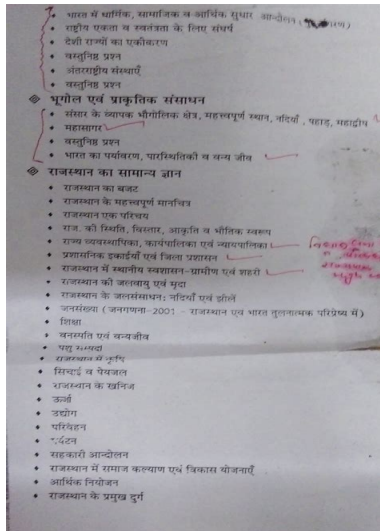 भारत में धार्मिक, सामाजिक व आर्थिक सुधार आन्दोलन
राष्ट्रीय एकता व स्वतंत्रता के लिए संघर्ष
देशी राज्यों का एकीकरण
वस्तुनिष्ठ प्रश्न
अंतरराष्ट्रीय संस्थाएँ
वस्तुनिष्ठ प्रश्न
भूगोल एवं प्राकृतिक संसाधन
संसार के व्यापक भौगोलिक क्षेत्र, महत्त्वपूर्ण स्थान, नदियाँ, पहाड़, महाद्वीप
महासागर
वस्तुनिष्ठ प्रश्न
भारत का पर्यावरण, पारिस्थितिकी व वन्य जीव
राजस्थान का सामान्य ज्ञान
राजस्थान का बजट
राजस्थान के महत्त्वपूर्ण मानचित्र
राजस्थान एक परिचय
राज. की स्थिति, विस्तार, आकृति व भौतिक स्वरूप
राज्य व्यवस्थापिका, कार्यपालिका एवं न्यायपालिका
प्रशासनिक इकाईयाँ एवं जिला प्रशासन
राजस्थान में स्थानीय स्वशासन-ग्रामीण एवं शहरी
राजस्थान की जलवायु एवं मृदा
राजस्थान के जलसंसाधन: नदियाँ एवं झीलें
जनसंख्या (जनगणना-2001 - राजस्थान एवं भारत तुलनात्मक परिप्रेष्य में)
शिक्षा
वनस्पति एवं वन्यजीव
पशु सम्पदा
राजस्थान में कृषि
सिंचाई व पेयजल
राजस्थान के खनिज
ऊर्जा
उद्योग
परिवहन
पर्यटन
सहकारी आन्दोलन
राजस्थान में समाज कल्याण एवं विकास योजनाएँ
आर्थिक नियोजन
राजस्थान के प्रमुख दुर्ग